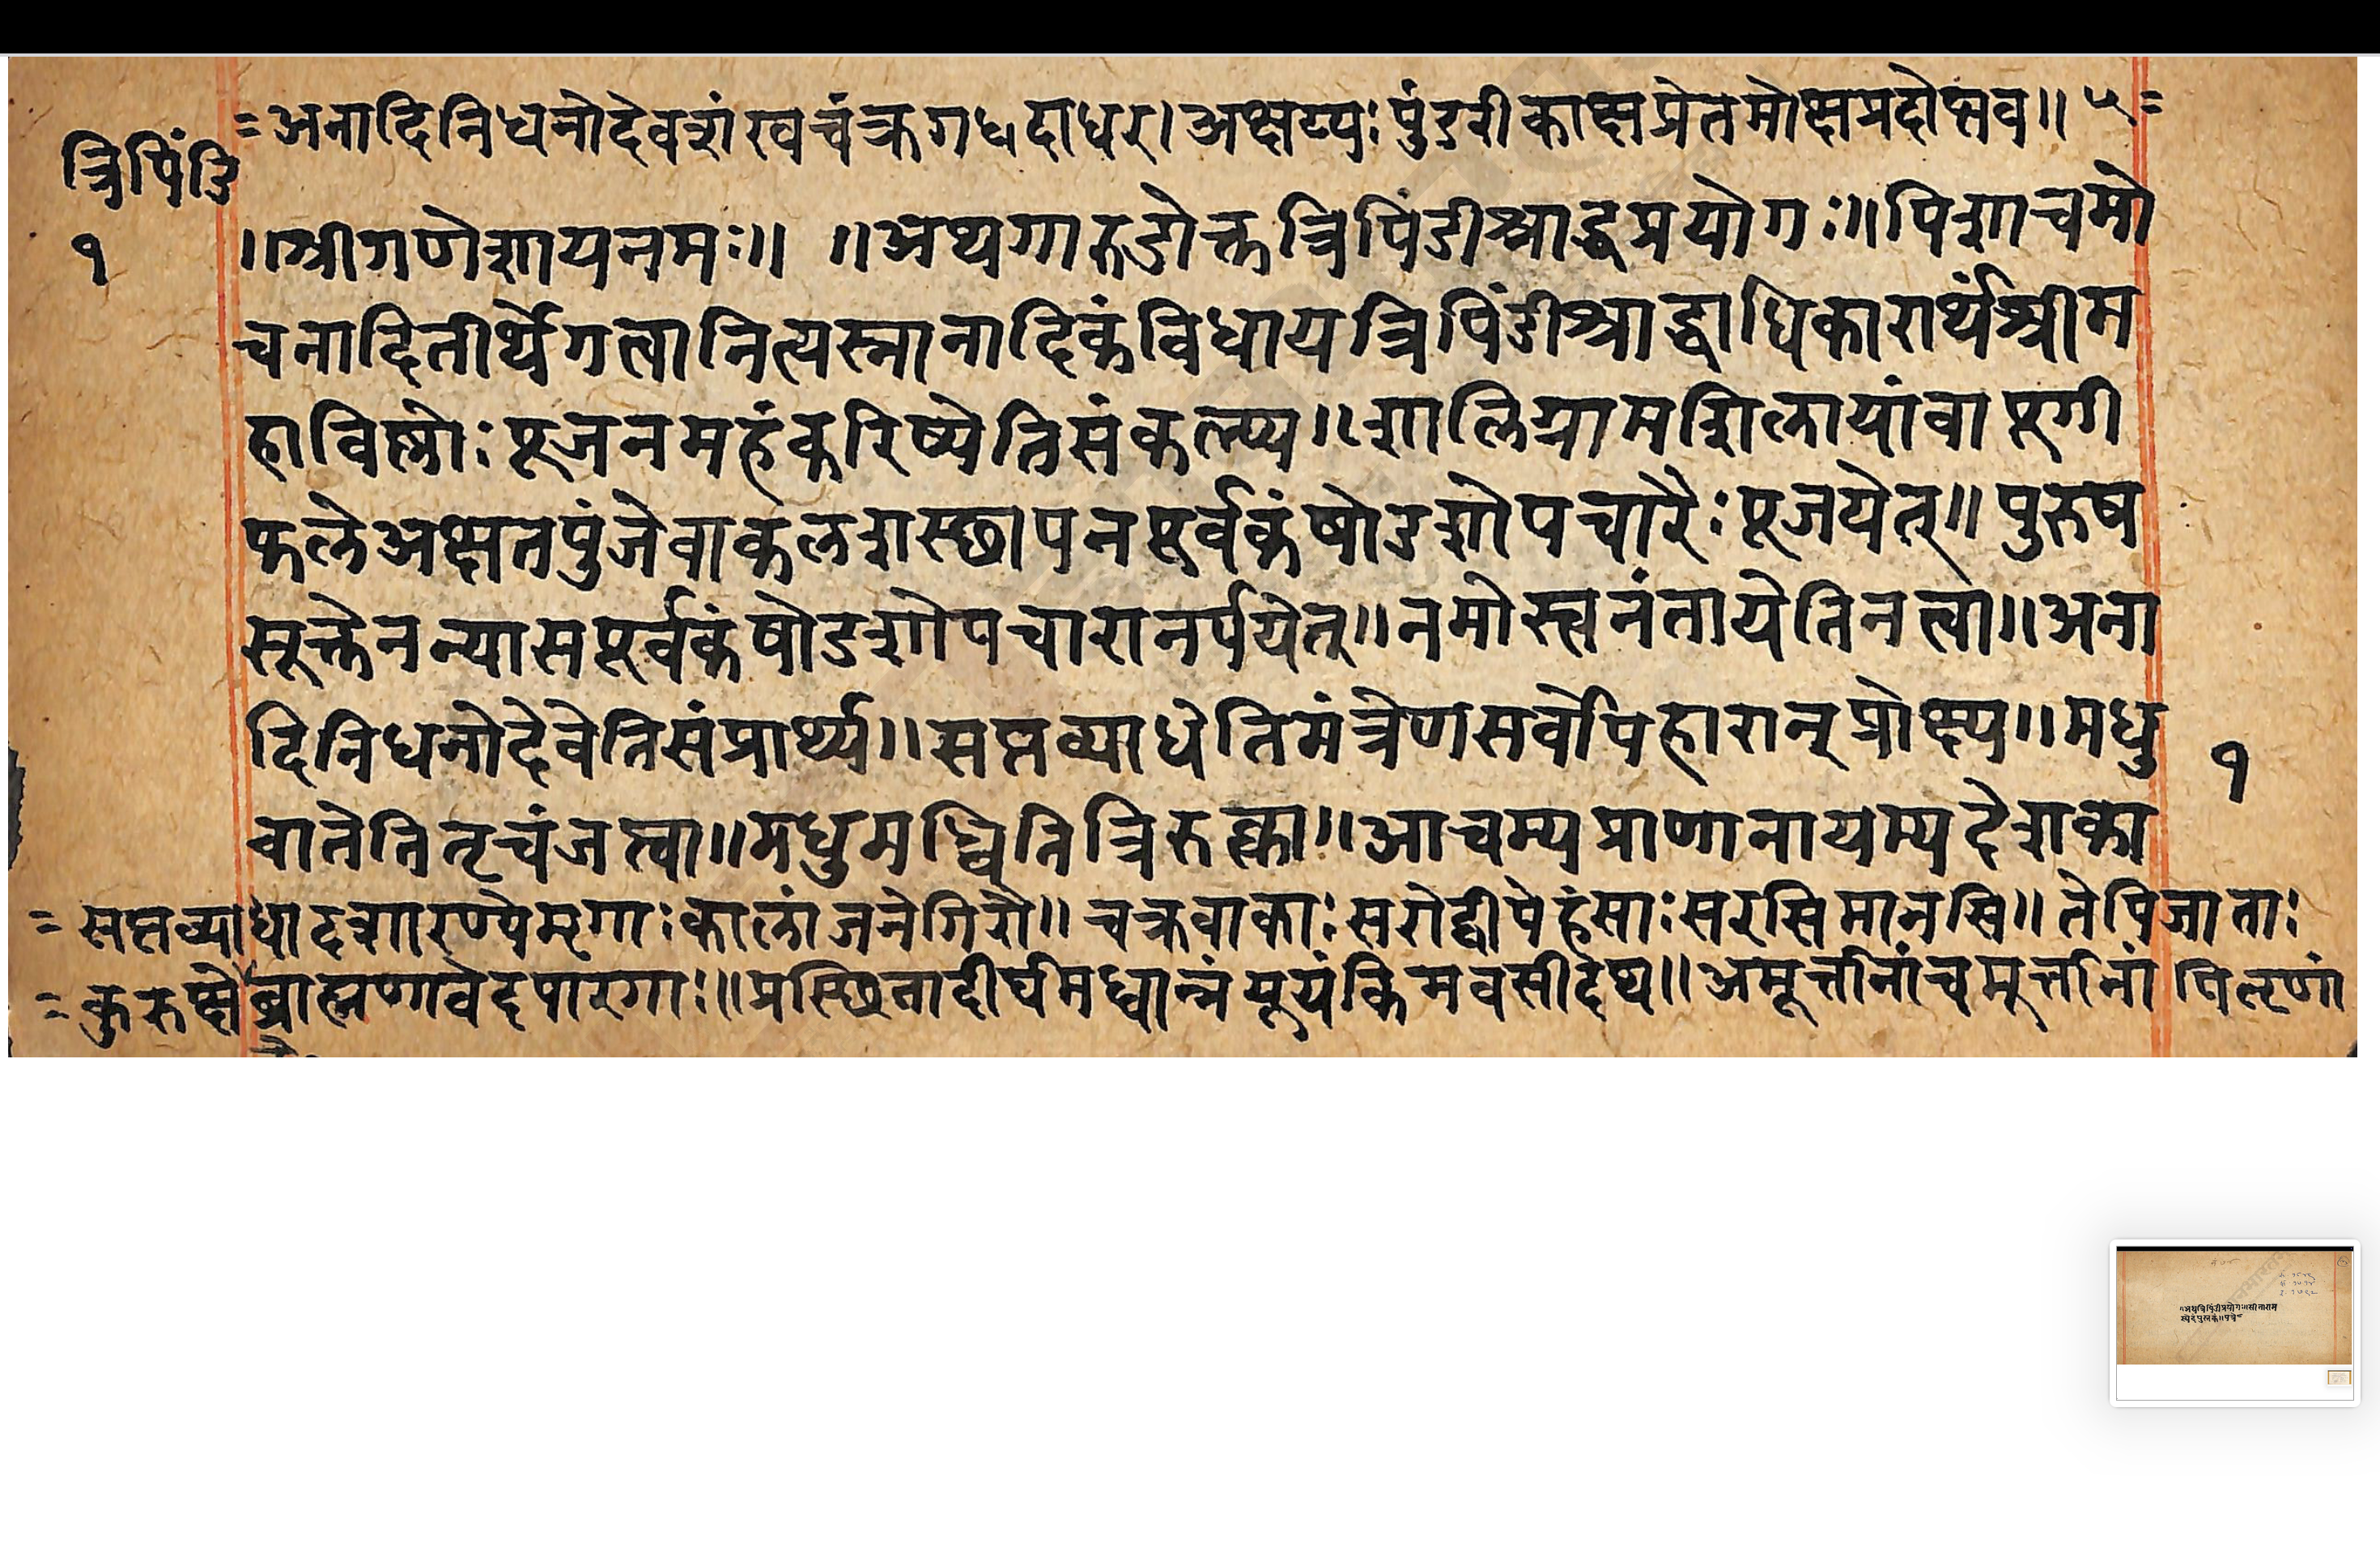 =अनादिनिधनोदेवशंखचंक्रगधदाधर।अक्षय्यः पुंडरीकाक्षप्रेतमोक्षप्रदोभव॥ ५=
त्रिपिंडि
१
॥श्रीगणेशायनमः॥ ॥अथगारुडोक्तत्रिपिंडीश्राद्धप्रयोगः॥पिशाचमो
चनादितीर्थेगत्वानित्यस्नानादिकंविधायत्रिपिंडीश्राद्धाधिकारार्थंश्रीम
हाविष्णोः पूजनमहंकरिष्येतिसंकल्प्य॥शालिग्रामशिलायांवापूगी
फलेअक्षतपुंजेवाकलशस्छापनपूर्वकंषोडशोपचारैः पूजयेत्॥पुरुष
सूक्तेनन्यासपूर्वकंषोडशोपचारानर्पयेत्॥नमोस्त्वनंतायेतिनत्वा॥अना
दिनिधनोदेवेतिसंप्रार्थ्य॥सप्तव्याधेतिमंत्रेणसर्वोपहारान्प्रोक्ष्य॥मधु
१
वातेतितृचंजप्त्वा॥मधुमध्वितित्रिरुक्त्वा॥आचम्यप्राणानायम्यदेशका
=सप्तव्याधादशारण्येमृगाः कालांजनेगिरौ॥चक्रवाकाः सरोद्वीपेहंसाः सरसिमानसि॥तेपिजाताः
=कुरुक्षेब्राह्मणावेदपारगाः॥प्रस्छितादीर्घमध्वान्नंयूयंकिमवसीदथ॥अमूर्त्तानांचमूर्त्तानां पितृणां